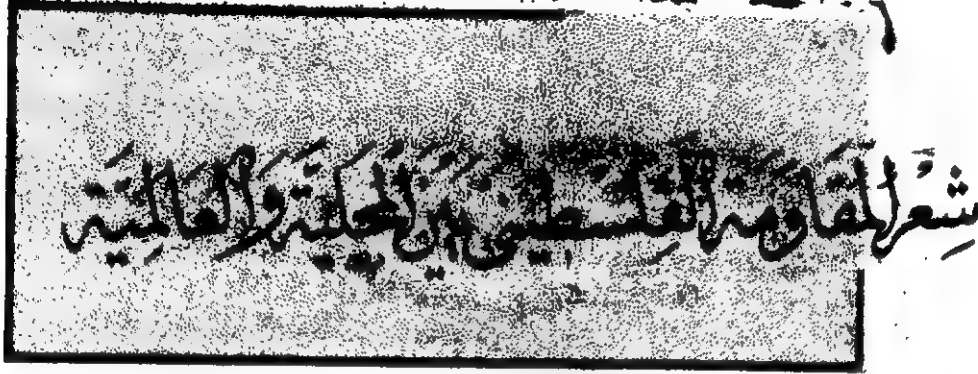 شِعْر المقَاومَة الفِلسَطيني بَين المحَليّة وَالعَالميّة